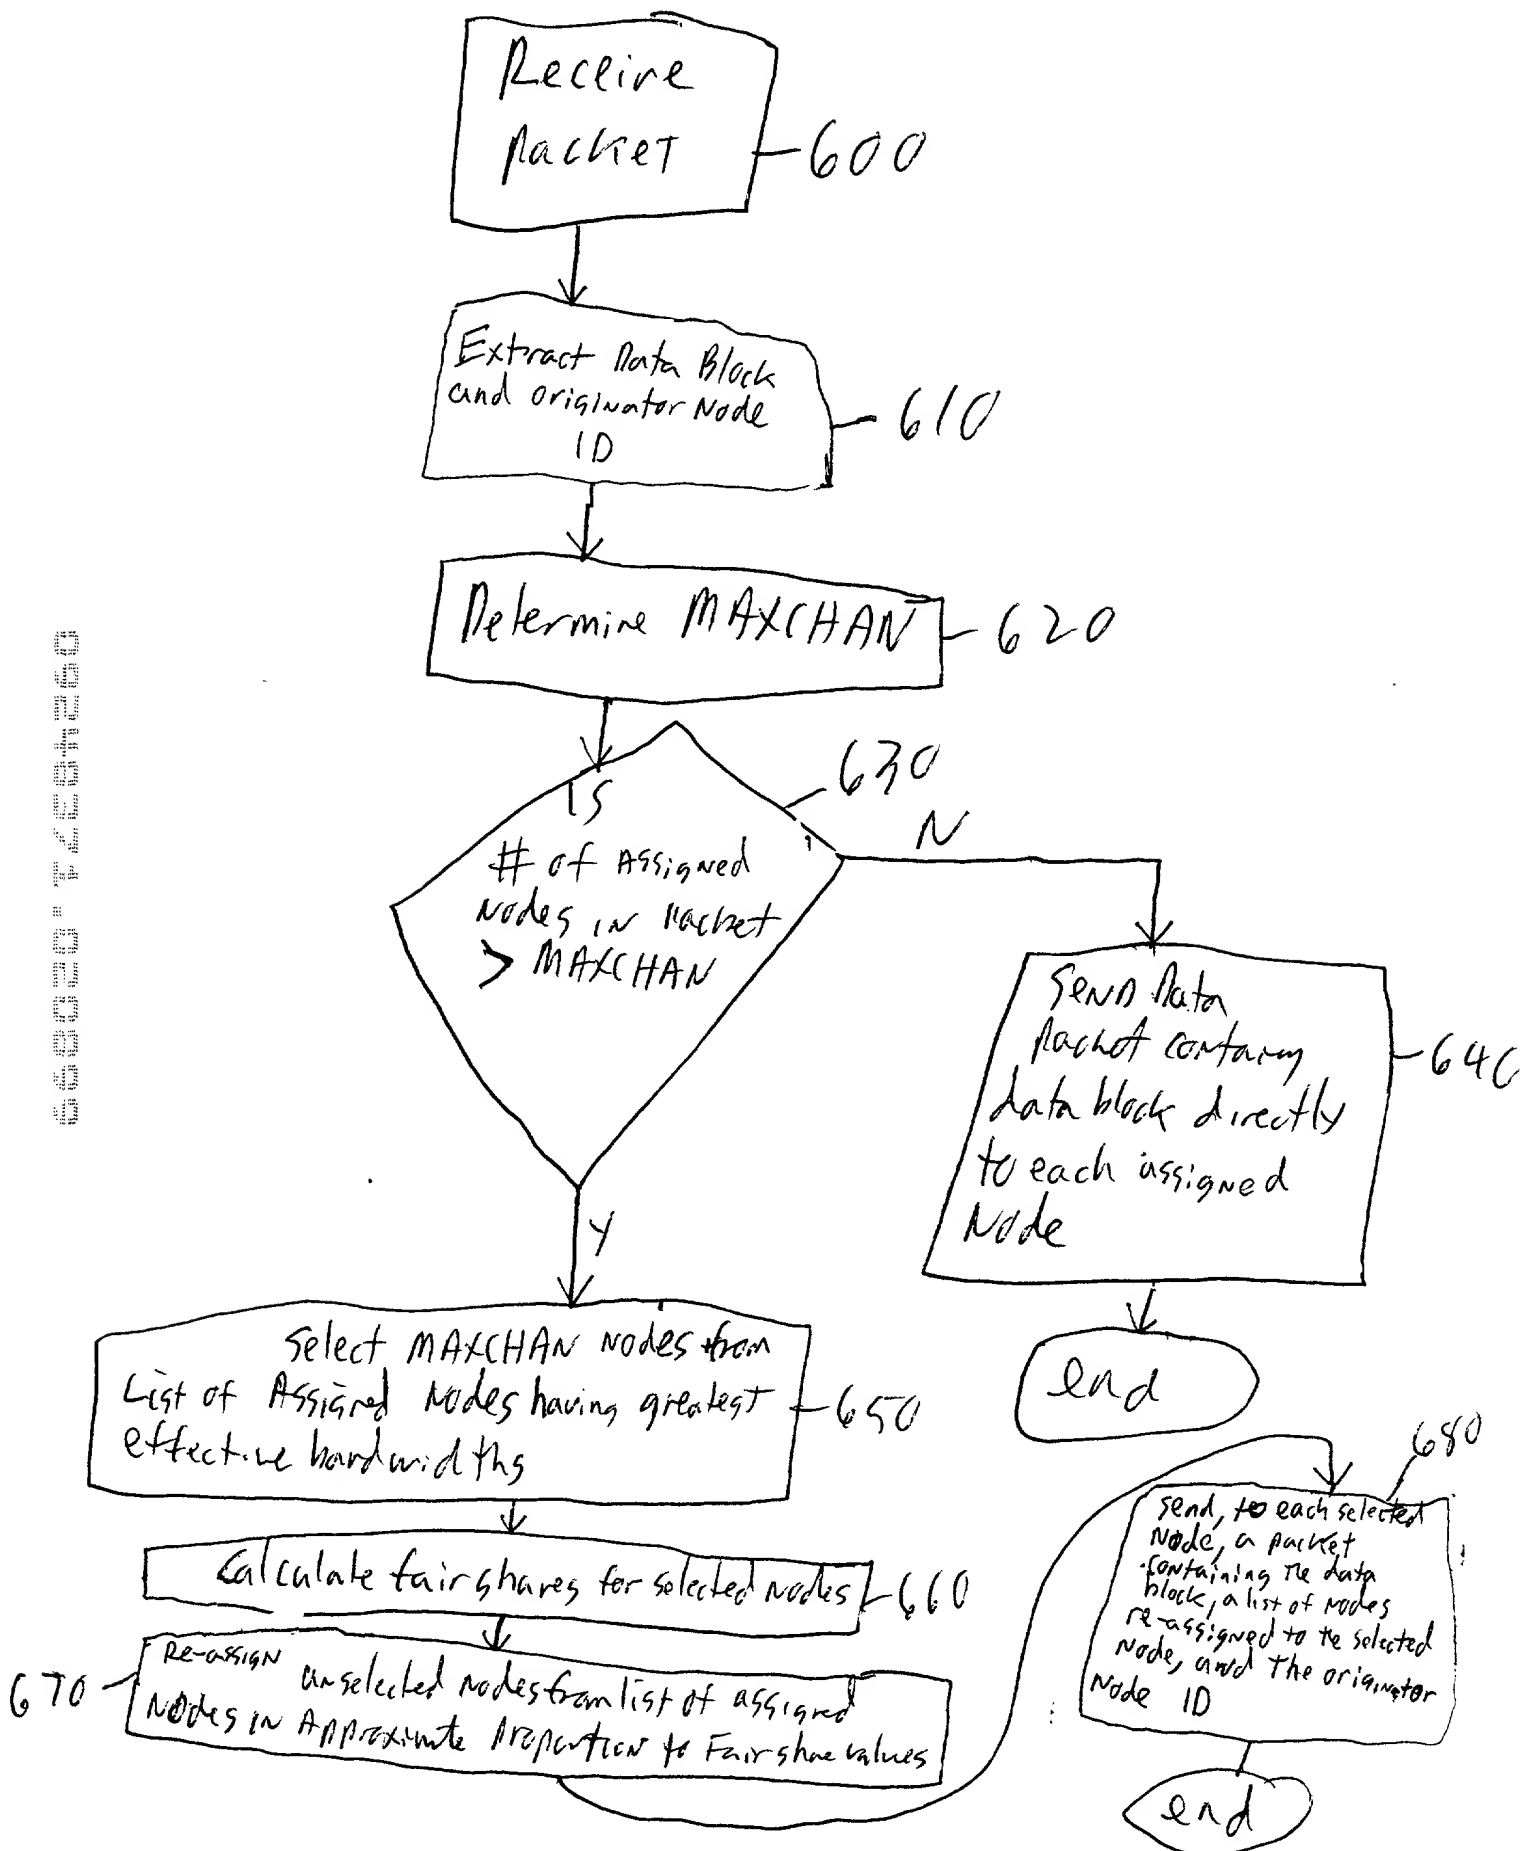 Receive
Packet
600
Extract Data Block
and originator Node
ID
610
Determine MAXCHAN
620
Is
# of Assigned
Nodes in Packet
> MAXCHAN
630
N
Send Data
Packet containing
data block directly
to each assigned
Node
640
end
Y
Select MAXCHAN Nodes from
List of Assigned Nodes having greatest
effective bandwidths
650
Calculate fair shares for selected nodes
660
Re-assign unselected nodes from list of assigned
Nodes in Approximate Proportion to Fair share values
670
680
Send, to each selected
Node, a packet
containing the data
block, a list of nodes
re-assigned to the selected
Node, and the originator
Node ID
end